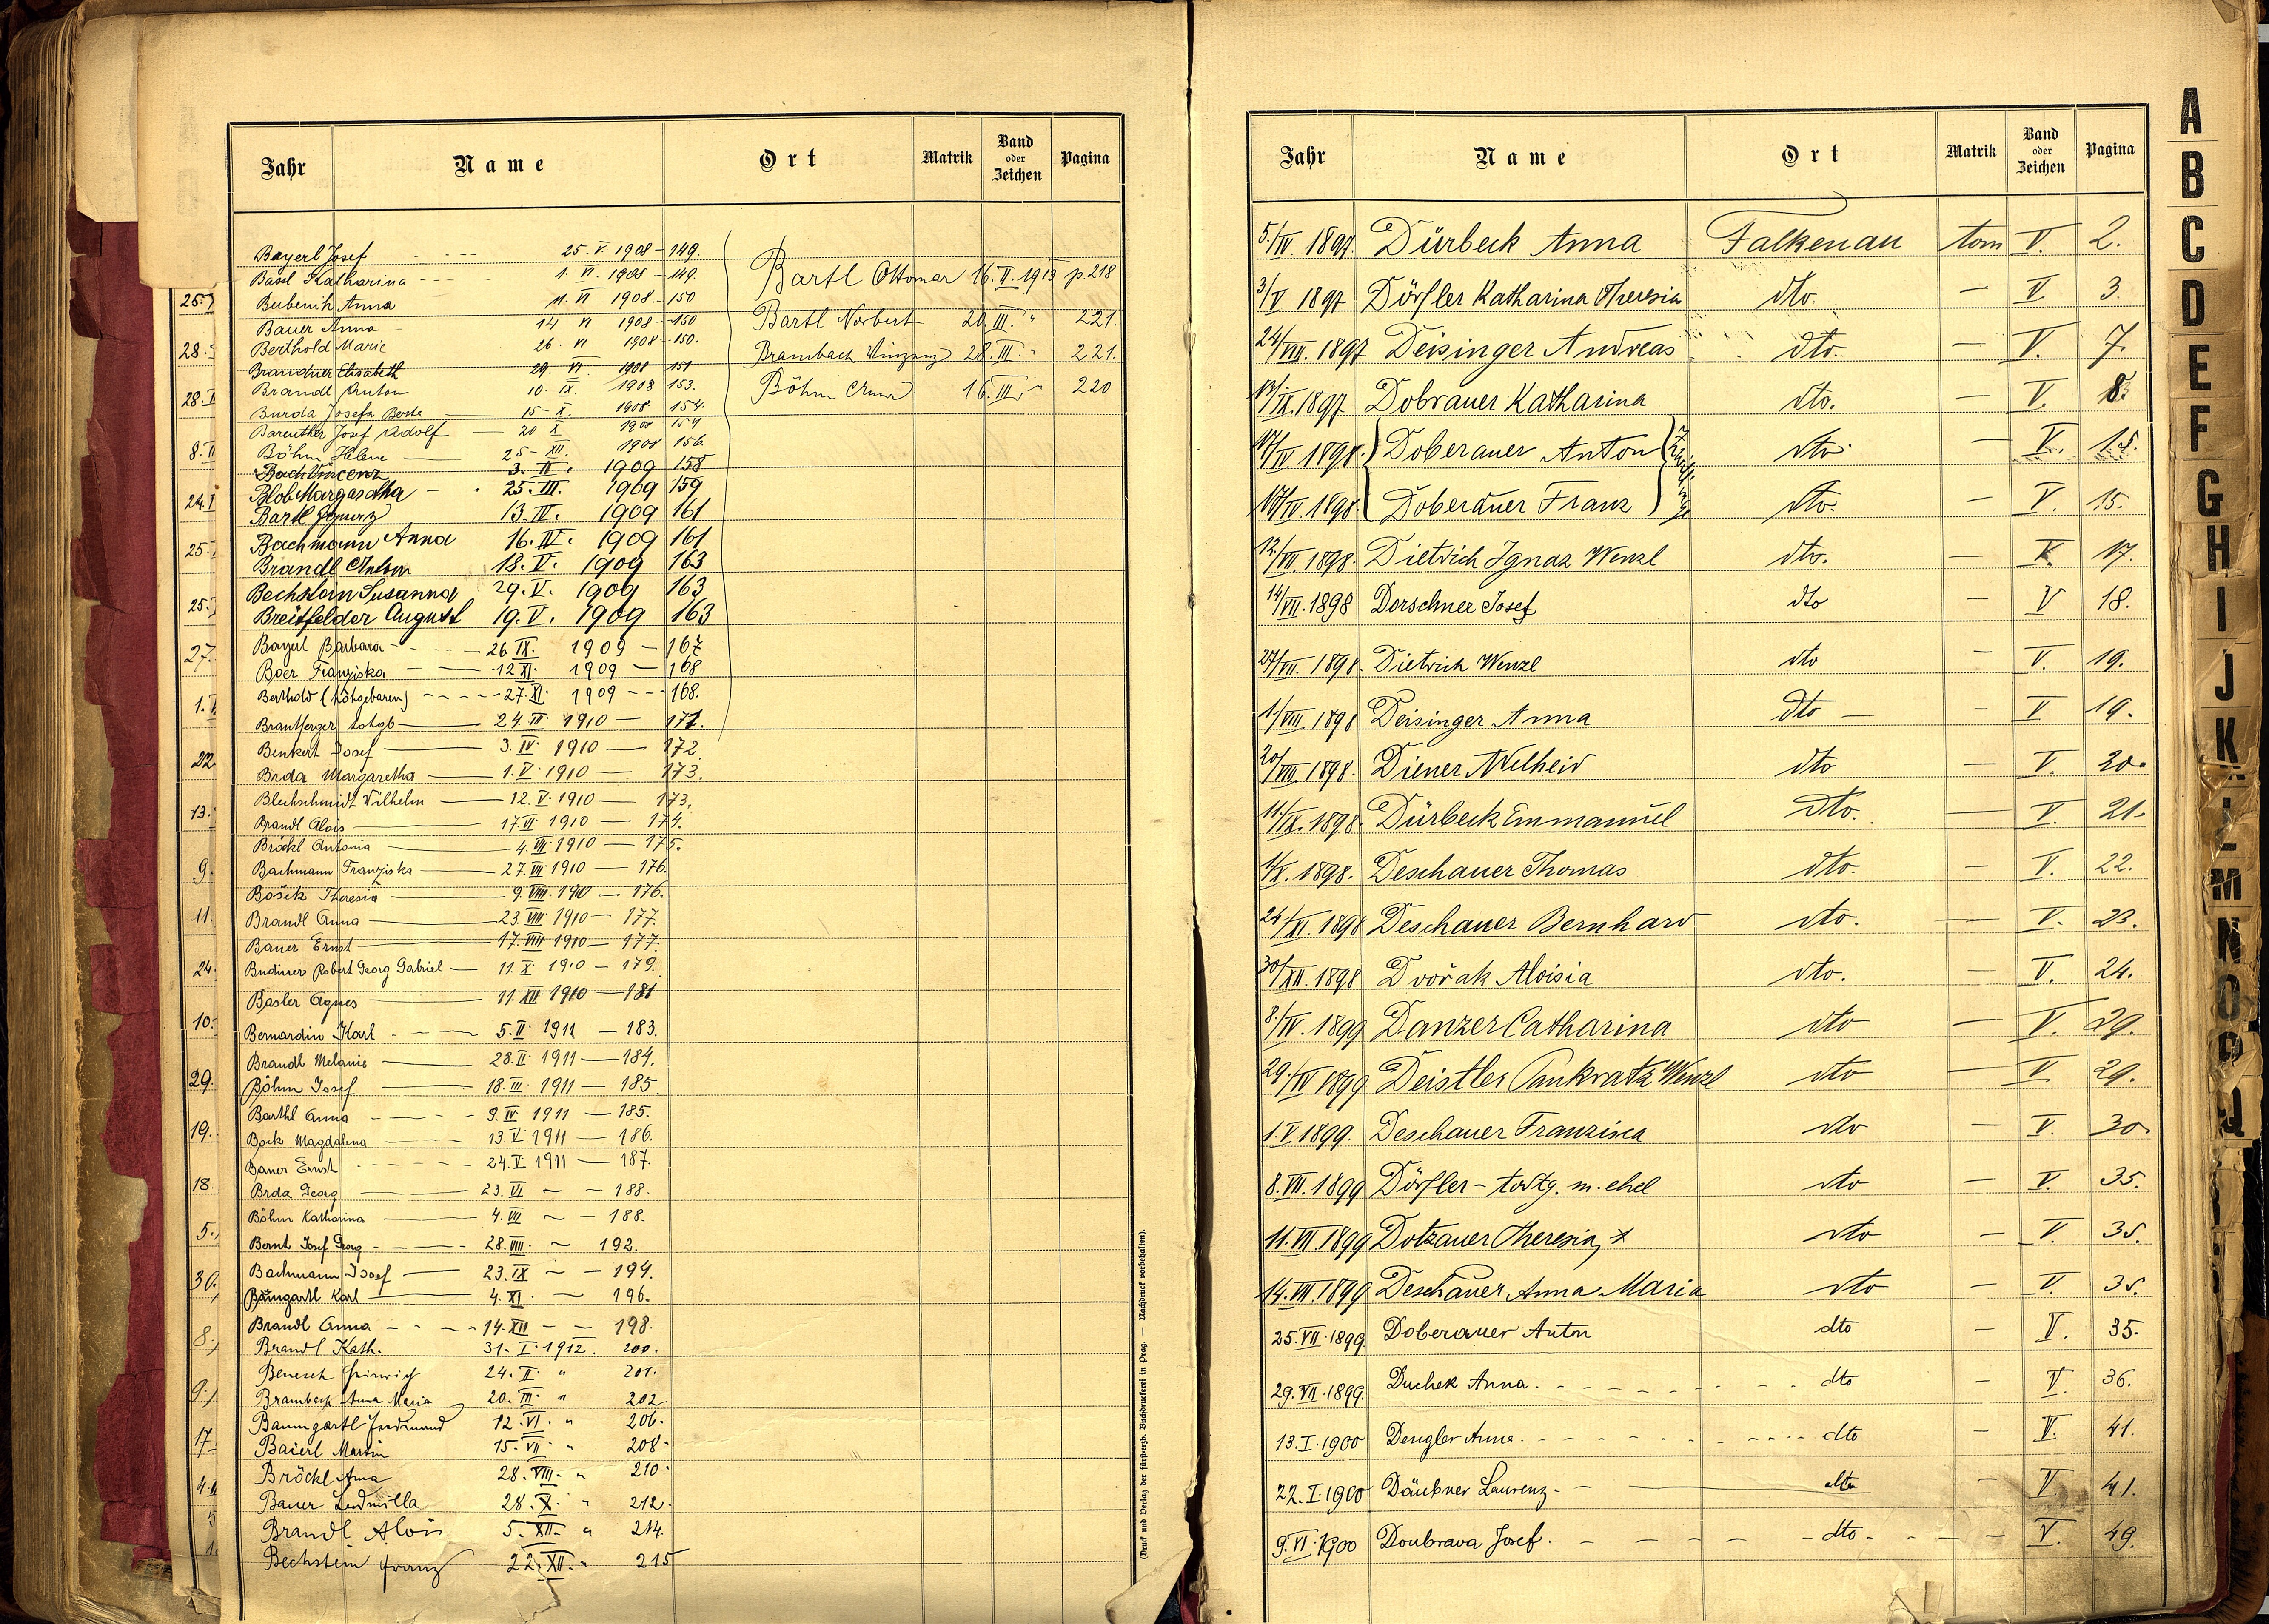 Jahr Name Ort Matrik Band oder Zeichen Pagina
Bayerl Josef 25. V. 1908 - 149.
Bassl Katharina 1. VI. 1908 - 149.
Bubenik Anna 11. VI 1908 - 150
Bauer Anna 14 VI 1908 - 150
Berthold Marie 26. VI 1908 - 150.
Brandner Elisabeth 29. VI 1908 151
Brandl Anton 10. IX. 1908 153.
Burda Josefa Berta 15 - X 1908 154.
Bareuther Josef Adolf 20 X 1908 154
Böhm Helene 25 - XII. 1908 156.
Bach Vincenz 3. II. 1909 158
Blob Margaretha 25. III. 1909 159
Bartl Ignaz 13. IV. 1909 161
Bachmann Anna 16. IV. 1909 161
Brandl Anton 18. V. 1909 163
Bechstein Susanna 29. V. 1909 163
Breitfelder August 19. V. 1909 163
Bayerl Barbara 26 IX. 1909 - 167
Baer Franziska 12 XI. 1909 - 168
Berthold (totgeboren) 27. XI. 1909 - 168.
totgb 24. III. 1910 - 171.
Benkert Josef 3. IV. 1910 - 172
Brda Margaretha 1. V. 1910 - 173.
Blechschmidt Wilhelm 12. V. 1910 - 173.
Brandl Alois 17. VI 1910 - 174.
Bröckl Antonia 4. VII. 1910 - 175.
Bachmann Franziska 27. VII. 1910 - 176.
Bošek Theresia 9. VIII. 1910 - 176.
Brandl Anna 23. VIII. 1910 - 177.
Bauer Ernst 17. VIII 1910 - 177.
Budiner Robert Georg Gabriel 11. X. 1910 - 179.
Basler Agnes 11. XII 1910 - 181
Bernardin Karl 5. II. 1911 - 183.
Brandl Melanie 28. II. 1911 - 184.
Böhm Josef 18. III. 1911 - 185.
Barthl Anna 9. IV. 1911 - 185.
Bock Magdalena 13. V. 1911 - 186.
Bauer Ernst 24. V 1911 - 187.
Brda Georg 23. VI ~ - 188.
Böhm Katharina 4. VII ~ - 188.
Bernt Josef Georg 28. VIII. ~ 192.
Bachmann Josef 23. IX ~ - 194.
Baumgartl Karl 4. XI. ~ - 196.
Brandl Anna 14. XII - - 198.
Brandl Kath. 31. I. 1912. 200.
Benesch Heinrich 24. II. " 201.
Brambach Anna Maria 20. III. " 202
Baumgartl Ferdinand 12. VI. " 206.
Baierl Martin 15. VII. " 208.
Bröckl Anna 28. VIII. " 210.
Bauer Ludmilla 28. X. " 212.
Brandl Alois 5. XII. " 214.
Bechstein Franz 22. XII. " 215
Bartl Ottomar 16. II. 1913 p. 218
Bartl Norbert 20. III. " 221.
Brambach Vinzenz 28. III. " 221.
Böhm Anna 16. III. " 220
25.
28.
28. I
8. II
24. I
25.
25.
27.
1.
22
13.
9.
11.
24.
10.
29.
19.
18.
5.
30.
8.
9.
17
4.
1.
(Druck und Verlag der fürsterzb. Buchdruckerei in Prag. — Nachdruck vorbehalten).
Jahr Name Ort Matrik Band oder Zeichen Pagina
5./IV. 1897. Dürbeck Anna Falkenau tom V. 2.
3/V 1897 Dörfler Katharina Theresia dto. — V. 3.
24/VIII. 1897 Deisinger Andreas dto. — V. 7.
13/IX. 1897 Dobrauer Katharina dto. — V. 8.
17/IV. 1898. Doberauer Anton dto. — V. 15.
Zwillinge
17/IV. 1898. Doberauer Franz dto. — V. 15.
12./VII. 1898. Dietrich Ignaz Wenzl dto. — V. 17.
14/VII. 1898 Dorschner Josef dto — V 18.
27/VII. 1898. Dietrich Wenzl dto — V. 19.
1./VIII. 1898. Deisinger Anna dto — V 19.
20/VIII. 1898. Diener Adelheid dto — V. 20.
11./IX. 1898. Dürbeck Emmanuel dto. — V. 21.
1/X. 1898. Deschauer Thomas dto. — V. 22.
24./XI. 1898 Deschauer Bernhard dto. — V. 23.
30/XII. 1898 Dvořak Aloisia dto. — V. 24.
8./IV. 1899 Danzer Catharina dto — V. 29.
29./IV 1899 Deistler Pankratz Wenzl dto — V 29.
1. V. 1899. Deschauer Franzisca dto — V. 30.
8. VII. 1899 Dörfler - todtg. m. ehel dto — V. 35.
11. VII. 1899 Dotzauer Theresia, + dto — V. 35.
14. VII. 1899 Deschauer Anna Maria dto — V. 35.
25. VII. 1899. Doberauer Anton dto — V. 35.
29. VII. 1899. Duchek Anna dto — V. 36.
13. I. 1900 Dengler Anna dto — V. 41.
22. I. 1900 Däubner Laurenz dto — V 41.
9. VI. 1900 Doubrava Josef. dto — V. 49.
A
B
C
D
E
F
G
H
I
J
K
L
M
N
O
P
Q